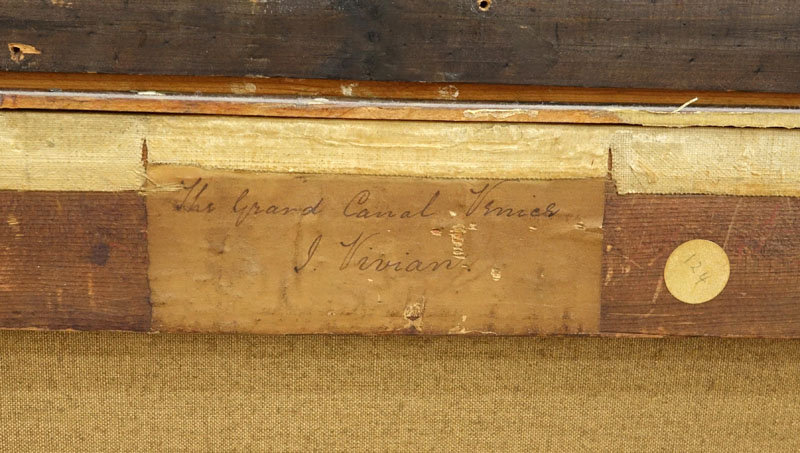 The Grand Canal Venice
J. Vivian.
124